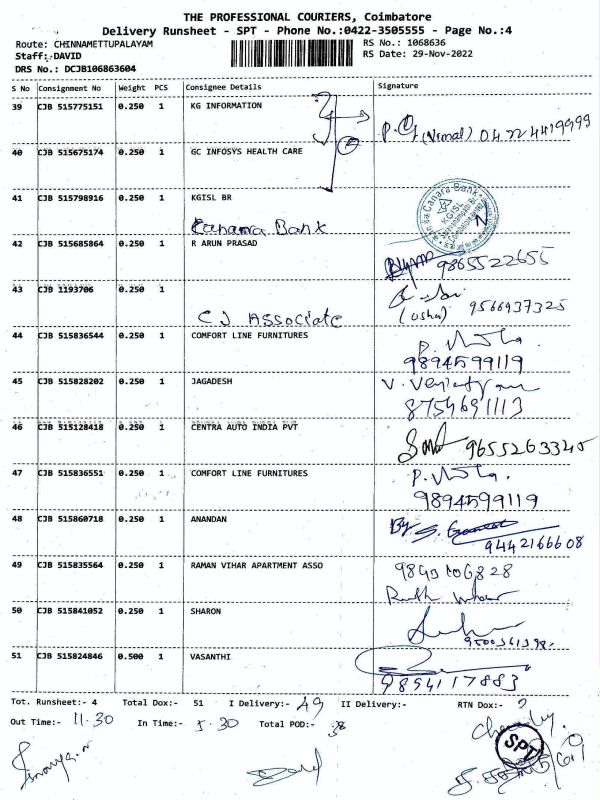 THE PROFESSIONAL COURIERS, Coimbatore
Delivery Runsheet - SPT - Phone No.:0422-3505555 - Page No.:4
Route: CHINNAMETTUPALAYAM RS No.: 1068636
Staff: DAVID RS Date: 29-Nov-2022
DRS No.: DCJB106863604
S No Consignment No Weight PCS Consignee Details Signature
39 CJB 515775151 0.250 1 KG INFORMATION
(Vimal)
40 CJB 515675174 0.250 1 GC INFOSYS HEALTH CARE
41 CJB 515798916 0.250 1 KGISL BR
Canara Bank
KGISL
Canara Bank
42 CJB 515685864 0.250 1 R ARUN PRASAD
9865522655
43 CJB 1193706 0.250 1
CJ Associate
(Usha) 9566937325
44 CJB 515836544 0.250 1 COMFORT LINE FURNITURES
9894599119
45 CJB 515828202 0.250 1 JAGADESH
8754691113
46 CJB 515128418 0.250 1 CENTRA AUTO INDIA PVT
9655263345
47 CJB 515836551 0.250 1 COMFORT LINE FURNITURES
9894599119
48 CJB 515860718 0.250 1 ANANDAN
9442166608
49 CJB 515835564 0.250 1 RAMAN VIHAR APARTMENT ASSO
50 CJB 515841052 0.250 1 SHARON
51 CJB 515824846 0.500 1 VASANTHI
9894117883
Tot. Runsheet:- 4 Total Dox:- 51 I Delivery:- 49 II Delivery:- RTN Dox:- 2
Out Time:- 11.30 In Time:- 5.30 Total POD:- 38
SPT